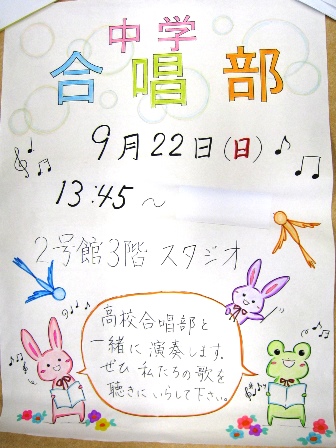 中学
合唱部
9月22日(日)
13:45〜
2号館3階 スタジオ
高校合唱部と
一緒に演奏します。
ぜひ私たちの歌を
聴きにいらして下さい。